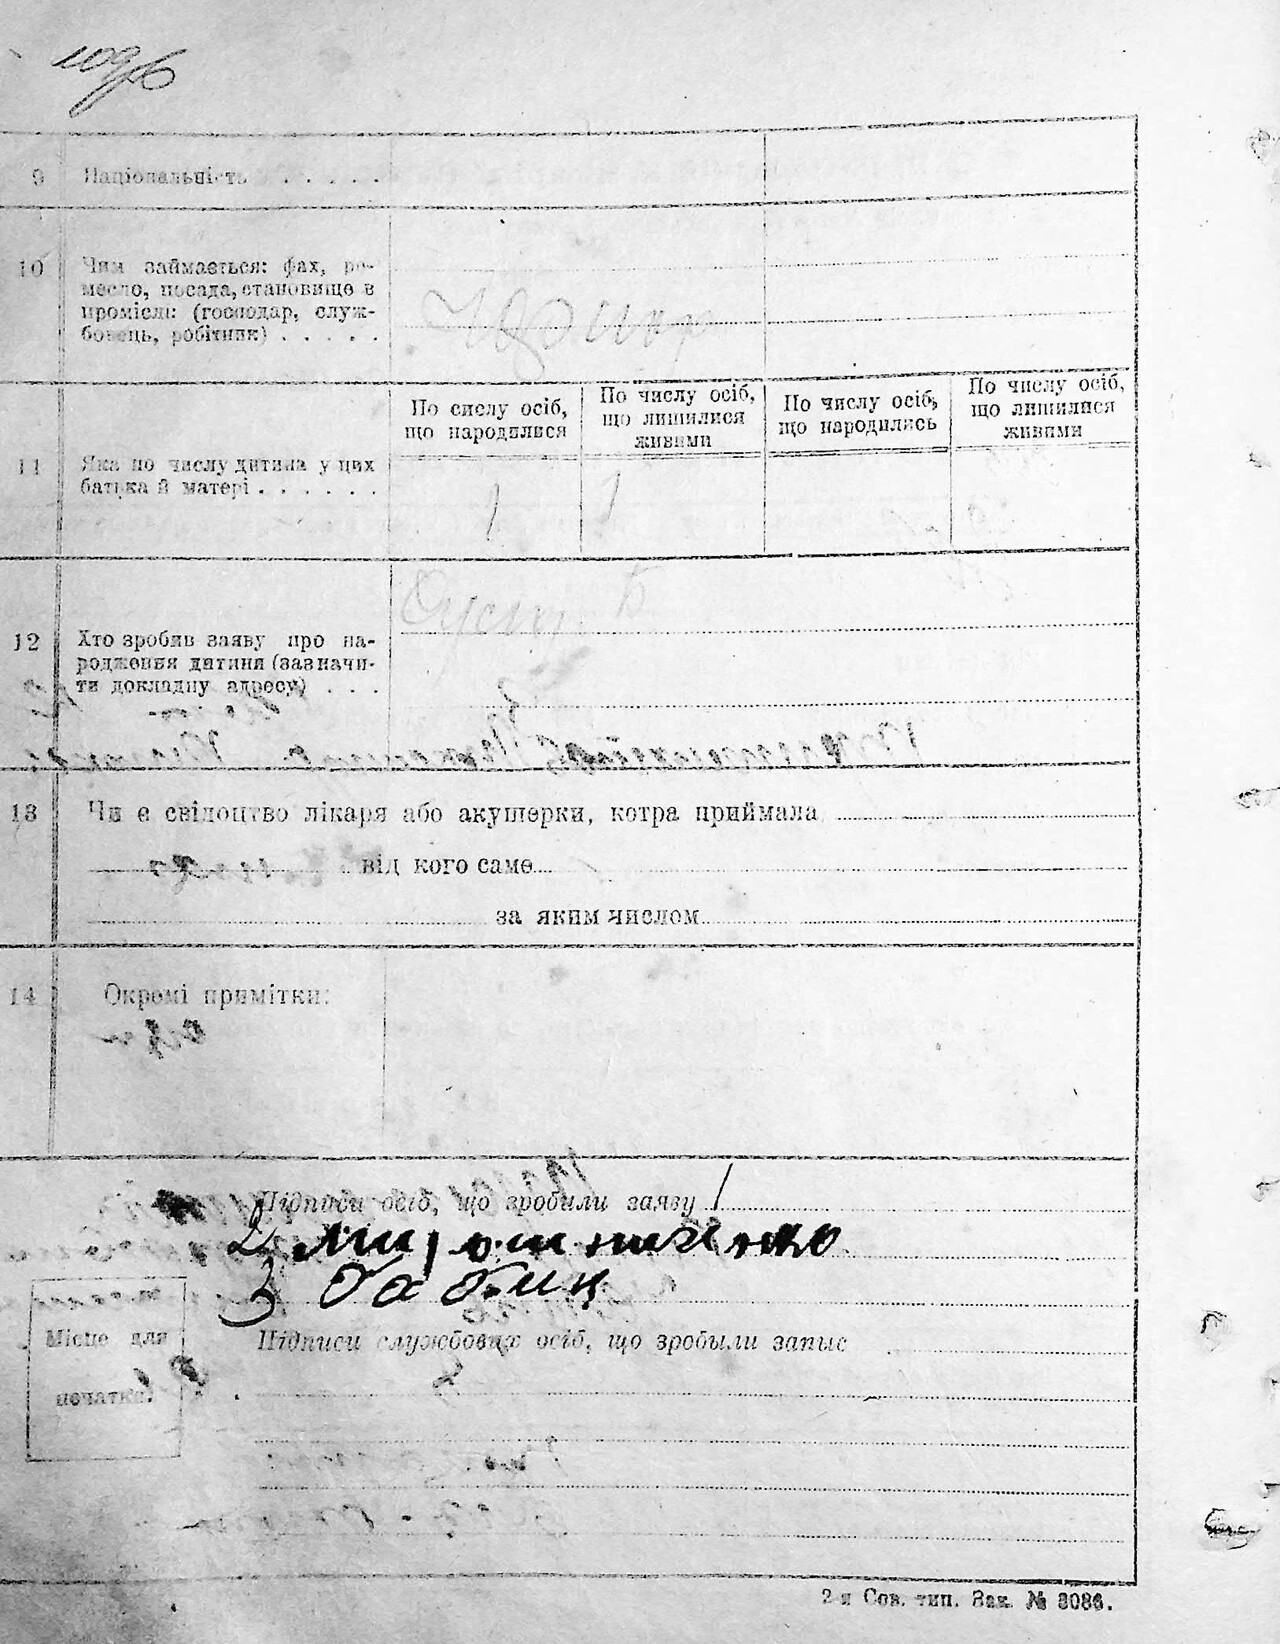 9 Національність . . . . .
10 Чим займається: фах, ре-
месло, посада, становище в
промислі: (господар, служ-
бовець, робітник) . . . . .
По сислу осіб,
що народилися
По числу осіб,
що лишилися
живими
По числу осіб,
що народились
По числу осіб,
що лишилися
живими
11 Яка по числу дитина у цих
батька й матері . . . . . .
1 1
12 Хто зробив заяву про на-
родження дитини (зазначи-
ти докладну адресу) . . .
13 Чи є свідоцтво лікаря або акушерки, котра приймала
від кого саме
за яким числом
14 Окремі примітки:
Підписи осіб, що зробили заяву 1
2
3 Бабич
Підписи службових осіб, що зробыли запыс
Місце для
печатки.
2-я Сов. тип. Зак. № 3086.